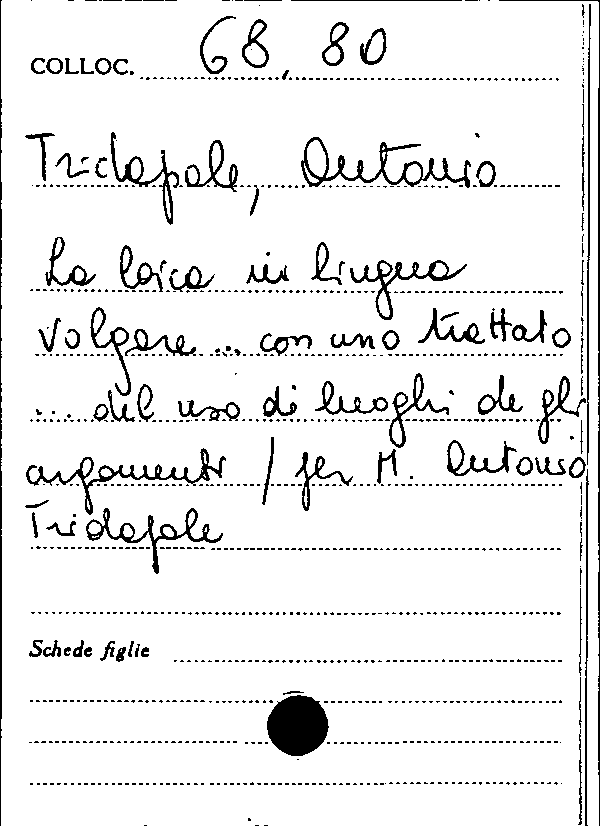 COLLOC. 68, 80
Tridapale, Antonio
La loica in lingua
volgare ... con uno trattato
... del uso di luoghi de gli
argomenti / per M. Antonio
Tridapale
Schede figlie